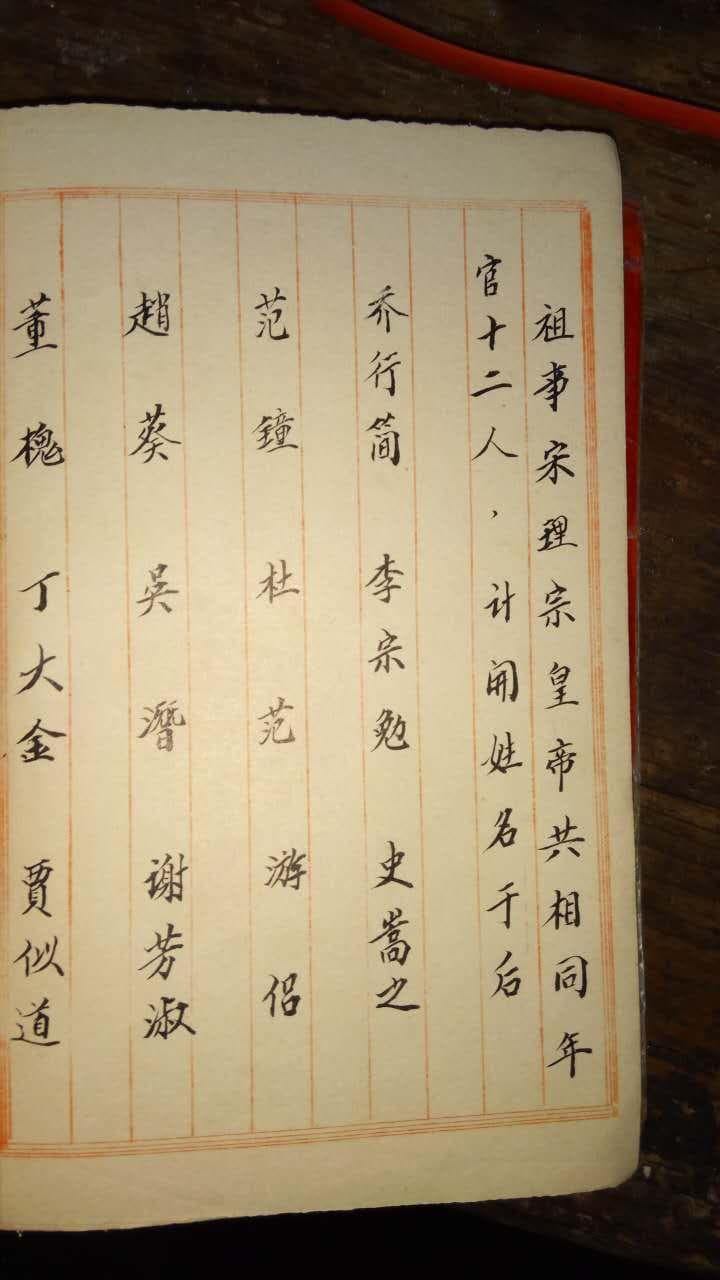 祖事宋理宗皇帝共相同年
官十二人，计开姓名于后
乔行简 李宗勉 史嵩之
范鐘 杜范 游侣
趙葵 吳潛 谢芳淑
董槐 丁大金 賈似道